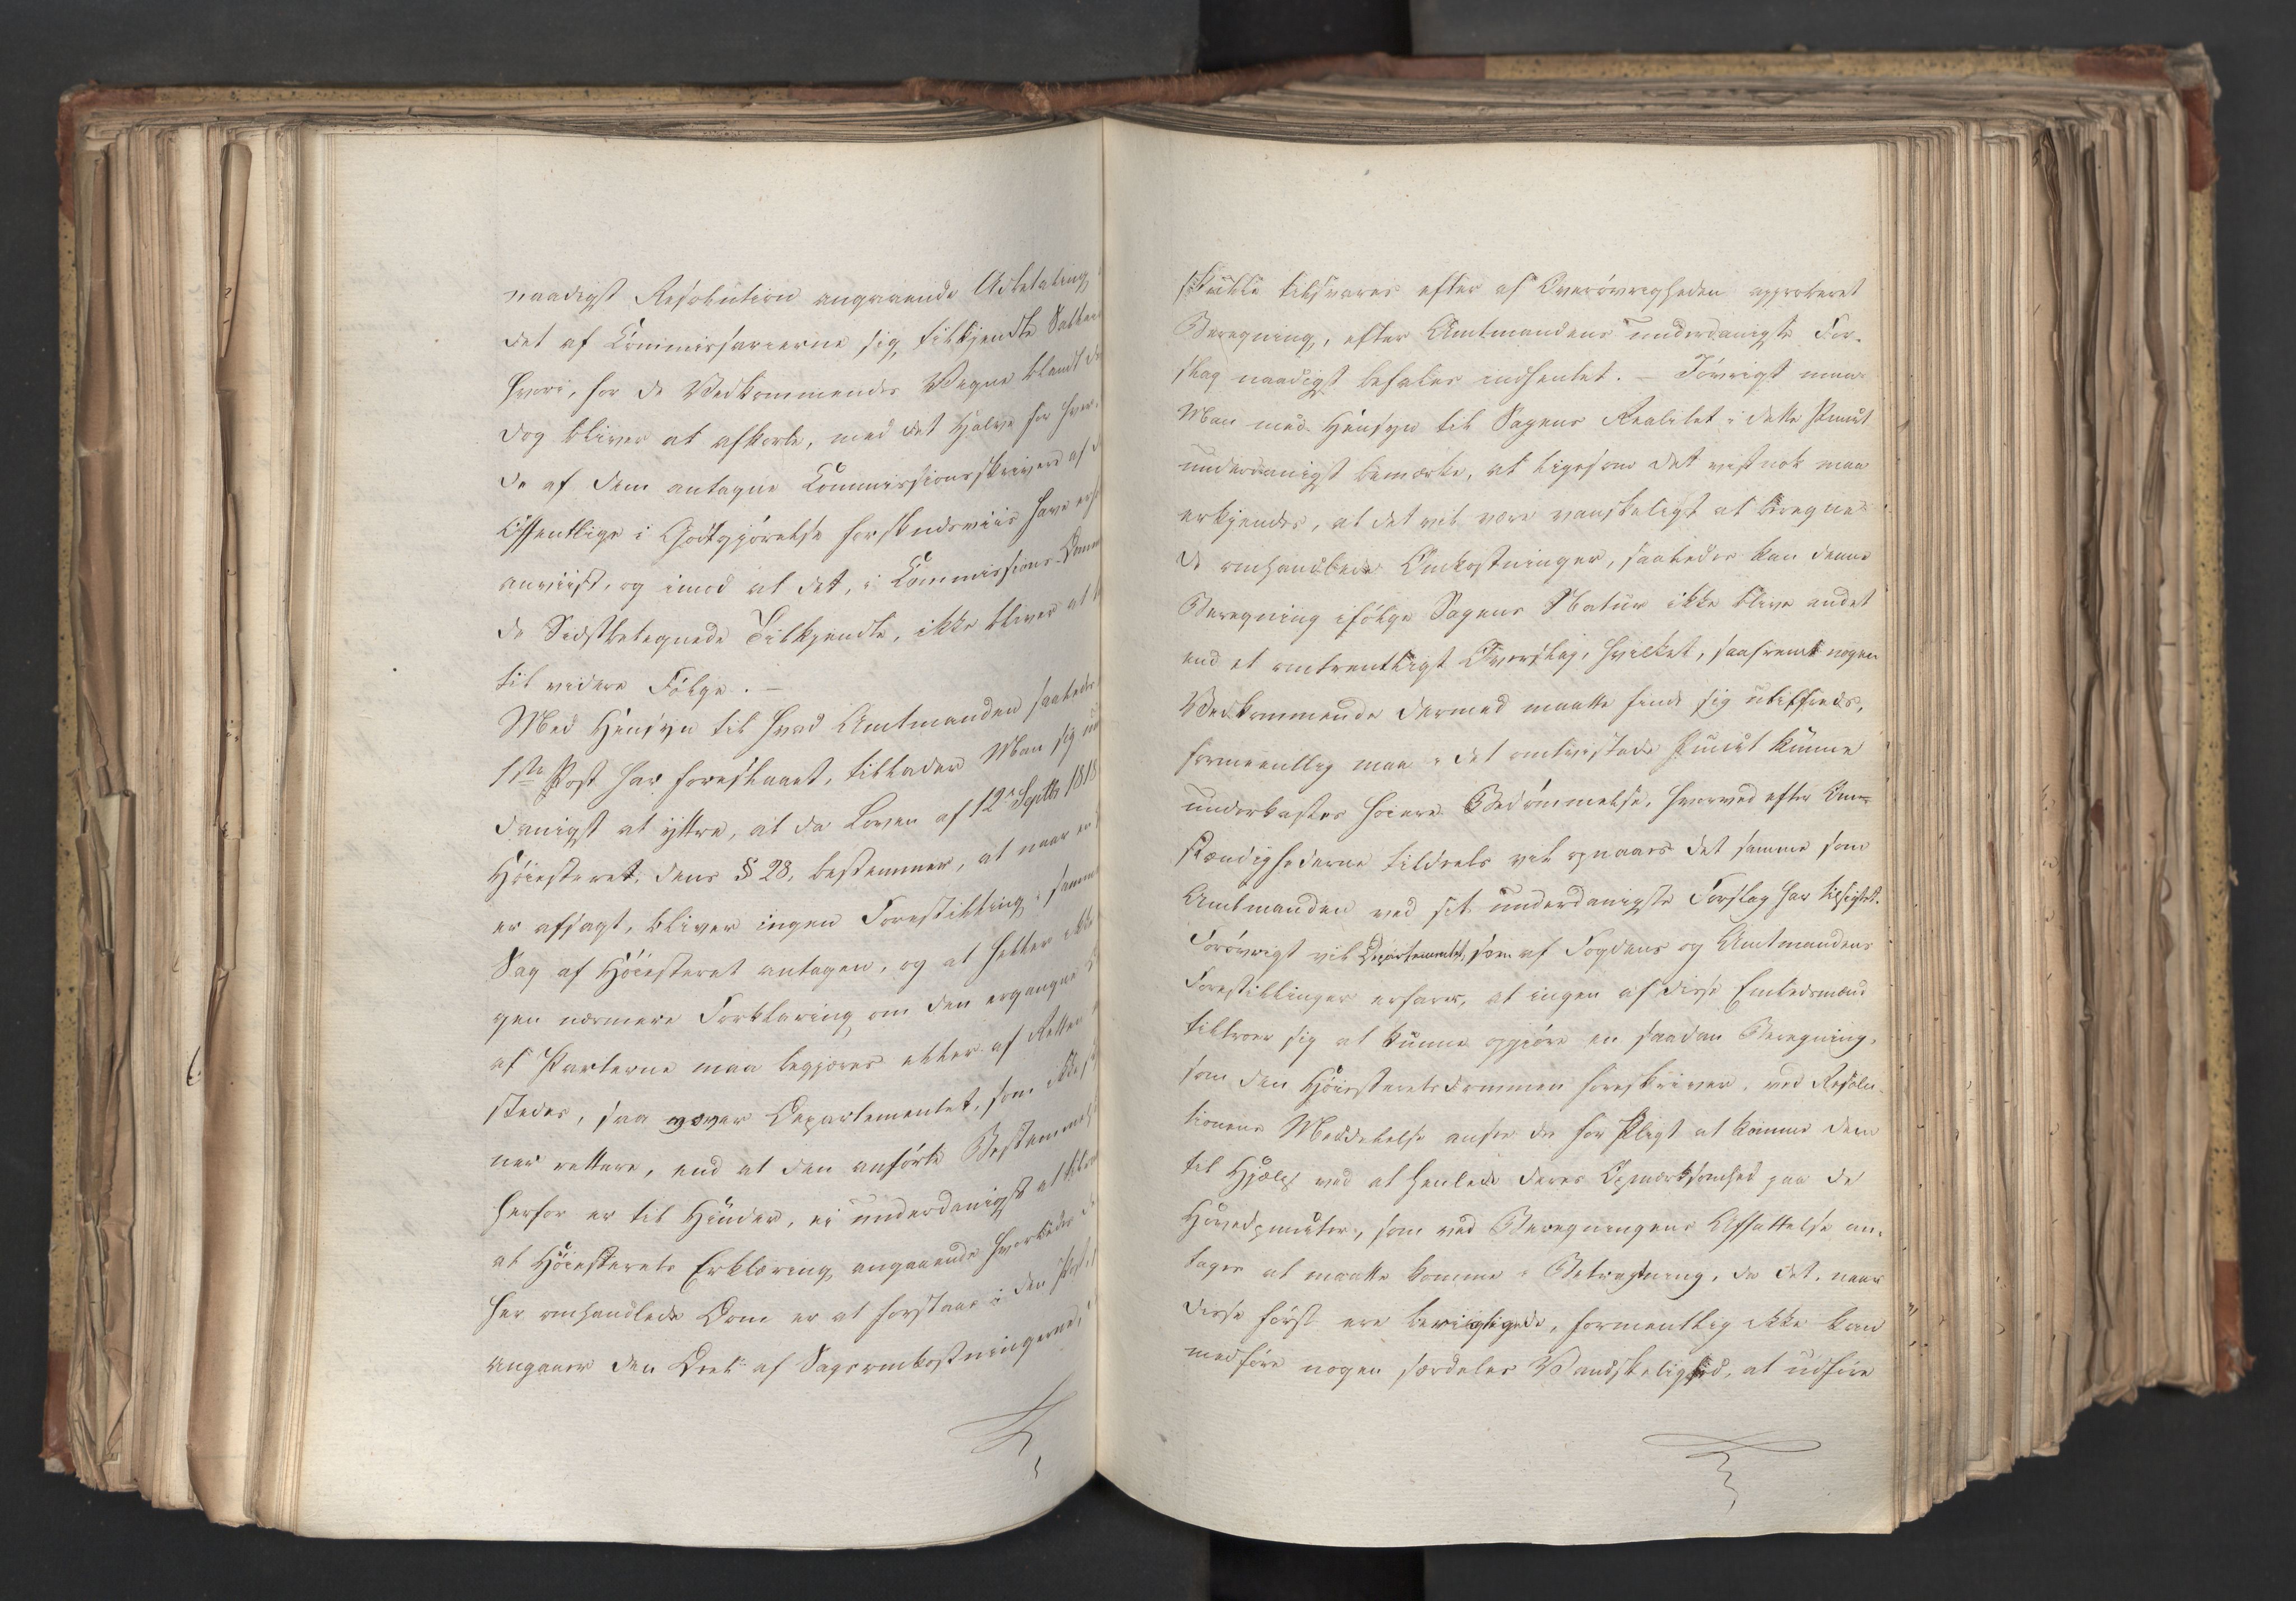 naadigst Resolution angaaende Udbetaling
det af Commissarierne sig tilkjendte Salær
hvori, for de Vedkommendes Vegne blandt
dog bliver at afkorte, med det Halve for hver,
de af dem antagne Commissionsskrivere af
Offentlige i Godtgjørelse forskudsviis have
anviist, og imod at det, i Commissions-Dommen
de Sidstbetegnede Tilkjendte, ikke bliver at
til videre Følge. –
Med Hensyn til hvad Amtmanden saaledes
1ste Post har foreslaaet, tillader Man sig
danigst at yttre, at da Loven af 12te Septbr 1818
Høiesteret, dens § 28, bestemmer, at naar
er afsagt, bliver ingen Forestilling i samme
Sag af Høiesteret antagen, og at heller ikke
gen nærmere Forklaring om den ergangne
af Parterne maa begjæres eller af Retten
stedes, saa vover Departementet, som ikke
ner rettere, end at den anførte Bestemmelse
herfor er til Hinder, ei underdanigst at
at Høiesterets Erklæring angaaende hvorledes
her omhandlede Dom er at forstaae i den
angaaer den Deel af Sagsomkostningerne,
skulle tilsvares efter af Overøvrigheden approberet
Beregning, efter Amtmandens underdanigste For-
slag naadigst befales indhentet. – Iøvrigt maa
Man med Hensyn til Sagens Realitet i dette Punct
underdanigst bemærke, at ligesom det vistnok maa
erkjendes, at det vil være vanskeligt at beregne
de omhandlede Omkostninger, saaledes kan denne
Beregning ifølge Sagens Natur ikke blive andet
end et omtrentligt Overslag, hvilket, saafremt nogen
Vedkommende dermed maatte finde sig utilfreds,
formeentlig maa i det omtvistede Punct kunne
underkastes høiere Bedømmelse, hvorved efter Om-
stændighederne tildeels vil opnaaes det samme som
Amtmanden ved sit underdanigste Forslag har tilsigtet.
Forøvrigt vil Departementet, som af Fogdens og Amtmandens
Forestillinger erfarer, at ingen af disse Embedsmænd
tiltroer sig at kunne opgjøre en saadan Beregning,
som den Høiesteretsdommen foreskriver, ved Resolu-
tionens Meddelelse ansee det for Pligt at komme dem
til Hjælp ved at henlede deres Opmærksomhed paa de
Hovedpuncter, som ved Beregningens Affattelse an-
tages at maatte komme i Betragtning, da det, naar
disse først ere berigtigede, formeentlig ikke kan
medføre nogen særdeles Vandskelighed, at udføre